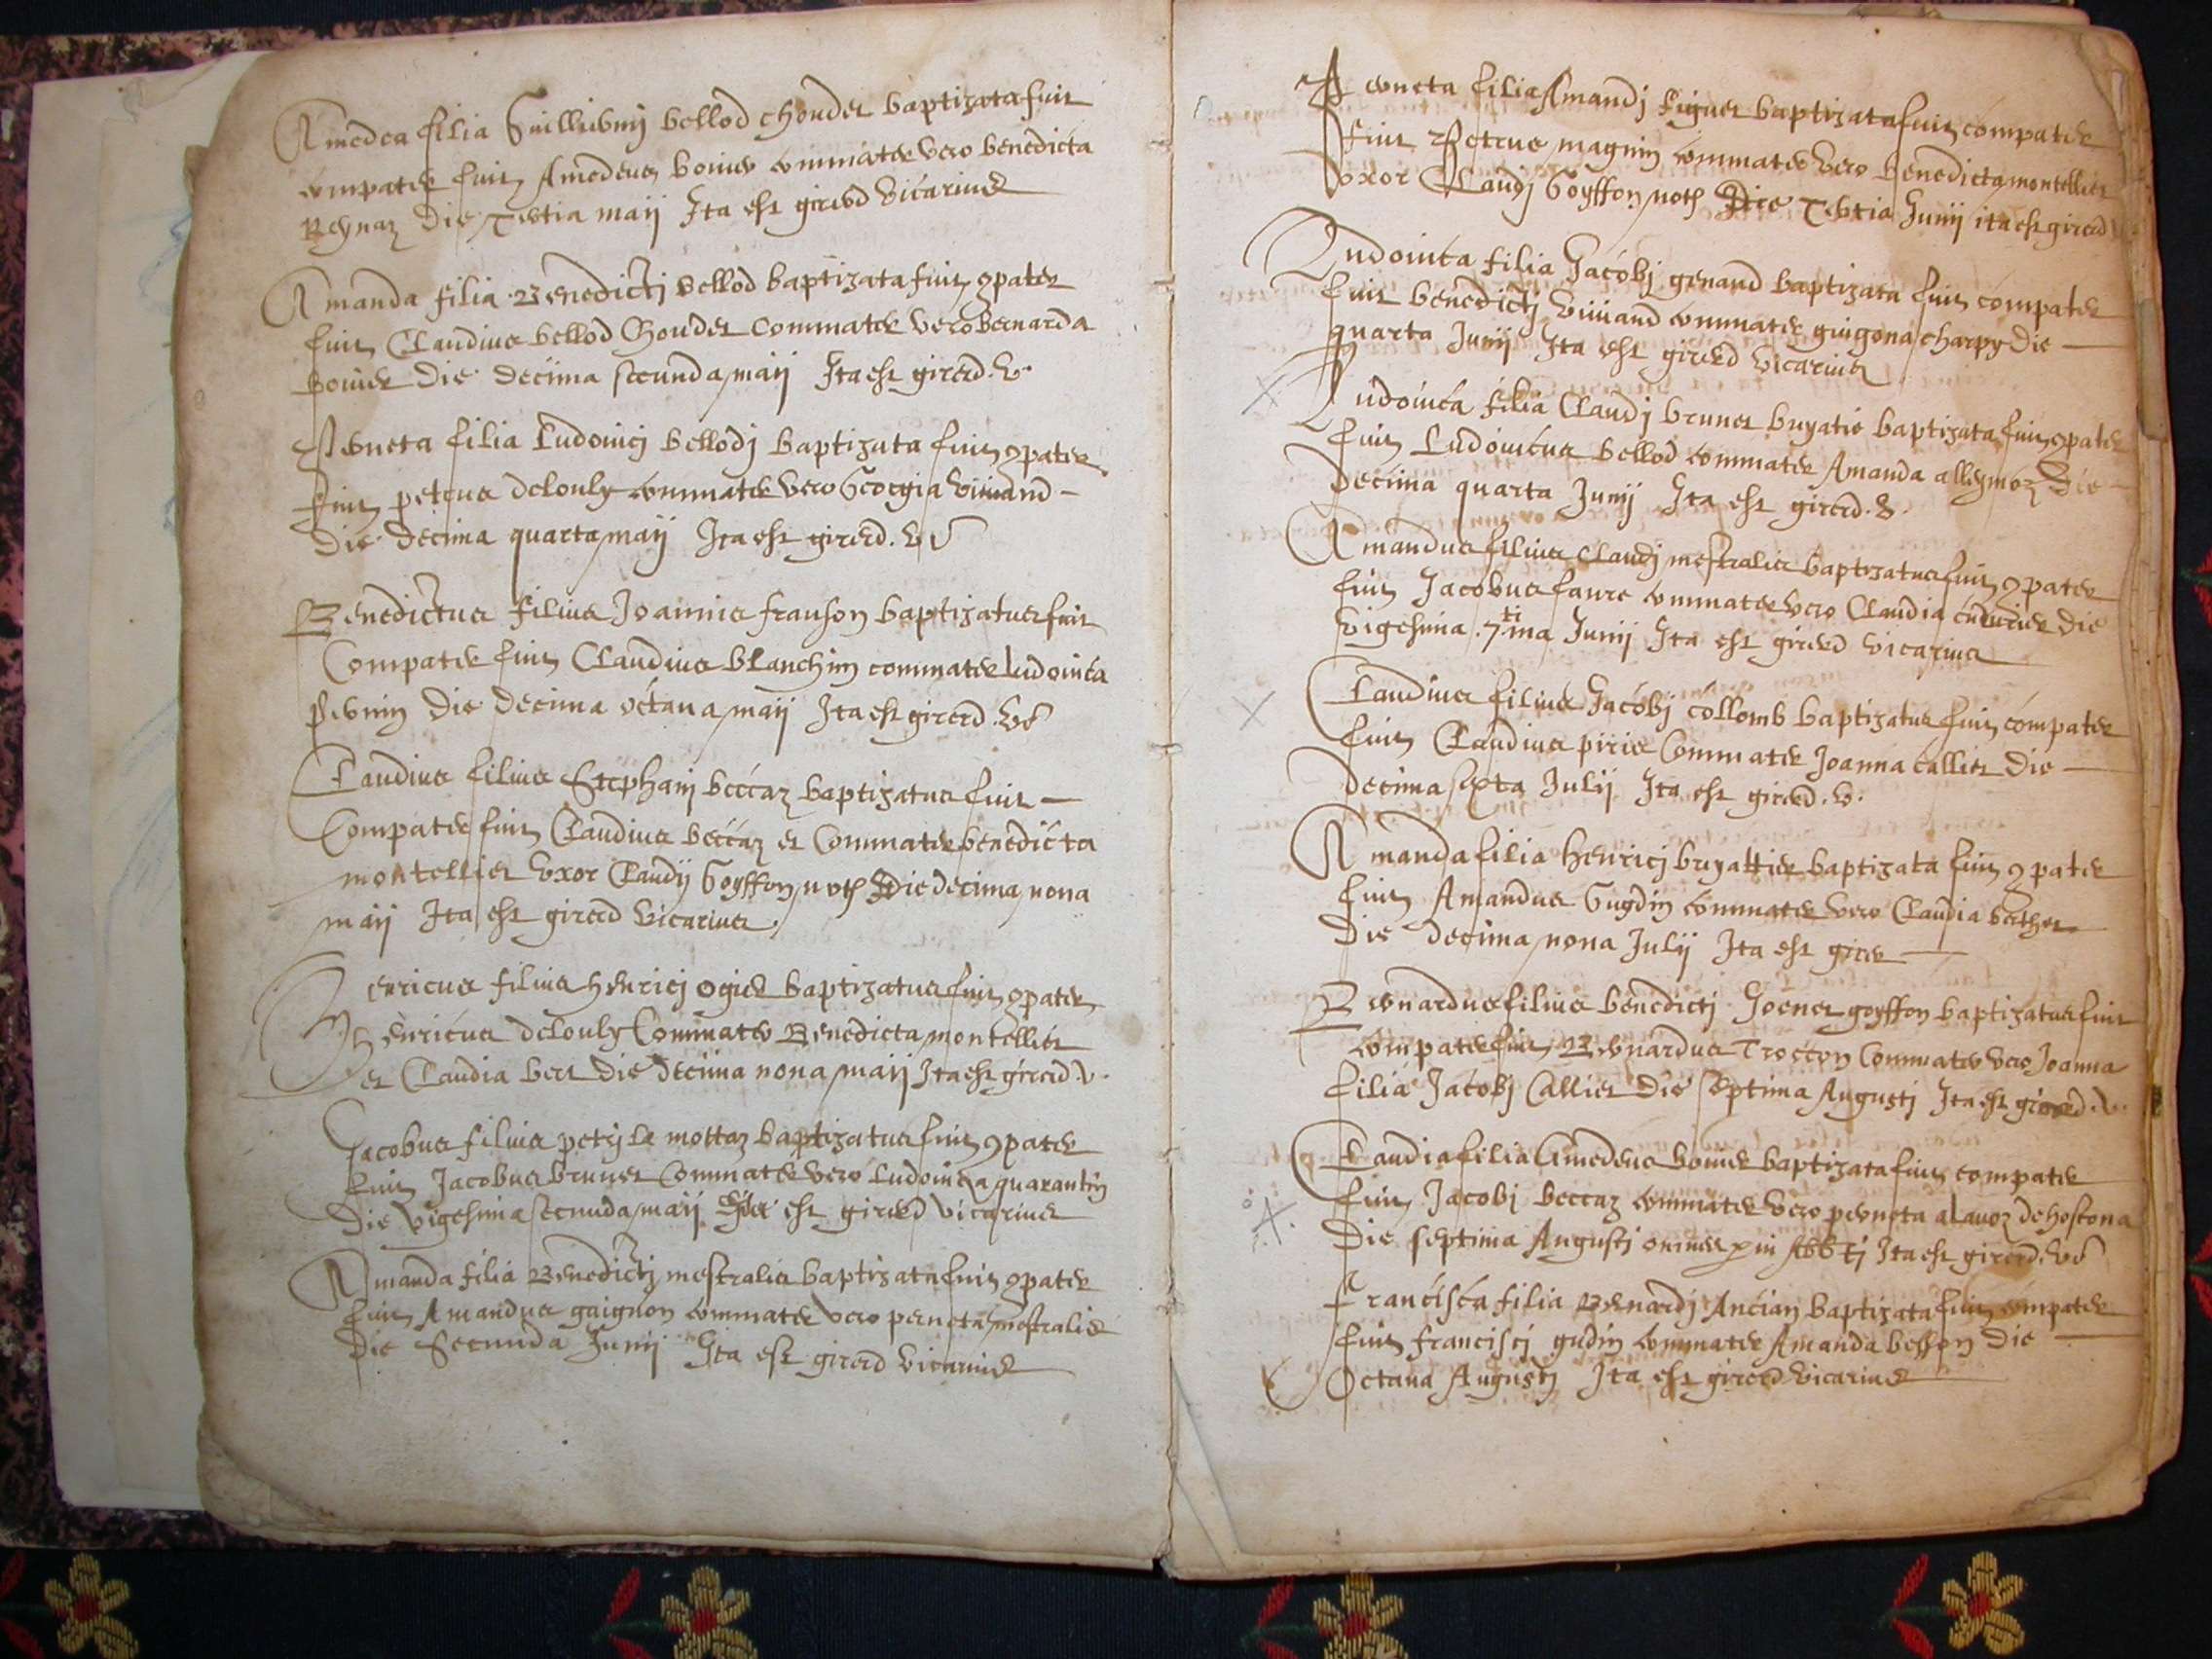 Amedea filia Guillielmij bellod chondet baptizata fuit
compater fuit Amedeus bouier commater vero benedicta
Reynaz die Tertia maij Ita est girerd vicarius
Amanda filia Benedicti bellod baptizata fuit 9pater
fuit Claudius bellod Chondet commater vero bernarda
bouier die decima secunda maij Ita est girerd. v.
Perneta filia Ludouici bellodi baptizata fuit 9pater
fuit petrus delouly commater vero Georgia viuiand
die decima quarta maij Ita est girerd. v
Benedictus filius Joannis franson baptizatus fuit
Compater fuit Claudius blanchin commater ludouica
pernin die decima octaua maij Ita est girerd. v
Claudius filius Stephani beccaz baptizatus fuit
Compater fuit Claudius beccaz et Commater benedicta
montellier vxor Claudij Goyffon not die decima nona
maij Ita est girerd vicarius
Henricus filius henrici ogier baptizatus fuit 9pater
henricus delouly Commater Benedicta montellier
et Claudia bert die decima nona maij Ita est girerd. v.
Jacobus filius petri le mottaz baptizatus fuit 9pater
fuit Jacobus brunet Commater vero Ludouica quarantin
die vigesima secunda maij Ita est girerd vicarius
Amanda filia Benedicti mestralis baptizata fuit 9pater
fuit Amandus gaignon commater vero perneta mestralis
die Secunda Junij Ita est girerd vicarius
Perneta filia Amandi figuet baptizata fuit compater
fuit Petrus magnin commater vero benedicta montellier
vxor Claudj Goyffon not die Tertia Junij ita est girerd
Ludouica filia Jacobi genand baptizata fuit compater
fuit benedicti viuiand commater guigona charpy die
quarta Junij Ita est girerd vicarius
Ludouica filia Claudj brunet buyatie baptizata fuit 9pater
fuit Ludouicus bellod commater Amanda alleymoz die
decima quarta Junij Ita est girerd. v.
Amandus filius Claudj mestralis baptizatus fuit 9pater
fuit Jacobus faure commater vero Claudia die
vigesima .7ti.ma Junij Ita est girerd vicarius
Claudius filius Jacobj collomb baptizatus fuit compater
fuit Claudius piris Commater Joanna callier die
decima sexta Julij Ita est girerd. v.
Amanda filia henricj buyattier baptizata fuit 9pater
fuit Amandus Gugdin commater vero Claudia bathet
die decima nona Julij Ita est girer
Bernardus filius benedicti Joenet goyffon baptizatus fuit
compater fuit Bernardus Troccon Commater vero Joanna
filia Jacobj Callier die septima Augustj Ita est girerd. v.
Claudia filia Amedeus bouier baptizata fuit compater
fuit Jacobj beccaz commater vero perneta alauoz de hostona
die septima Augustj Ita est girerd. v
francisca filia Bernardj Ancian baptizata fuit compater
fuit francisci gudin commater Amanda besson die
Octaua Augustj Ita est girerd vicarius